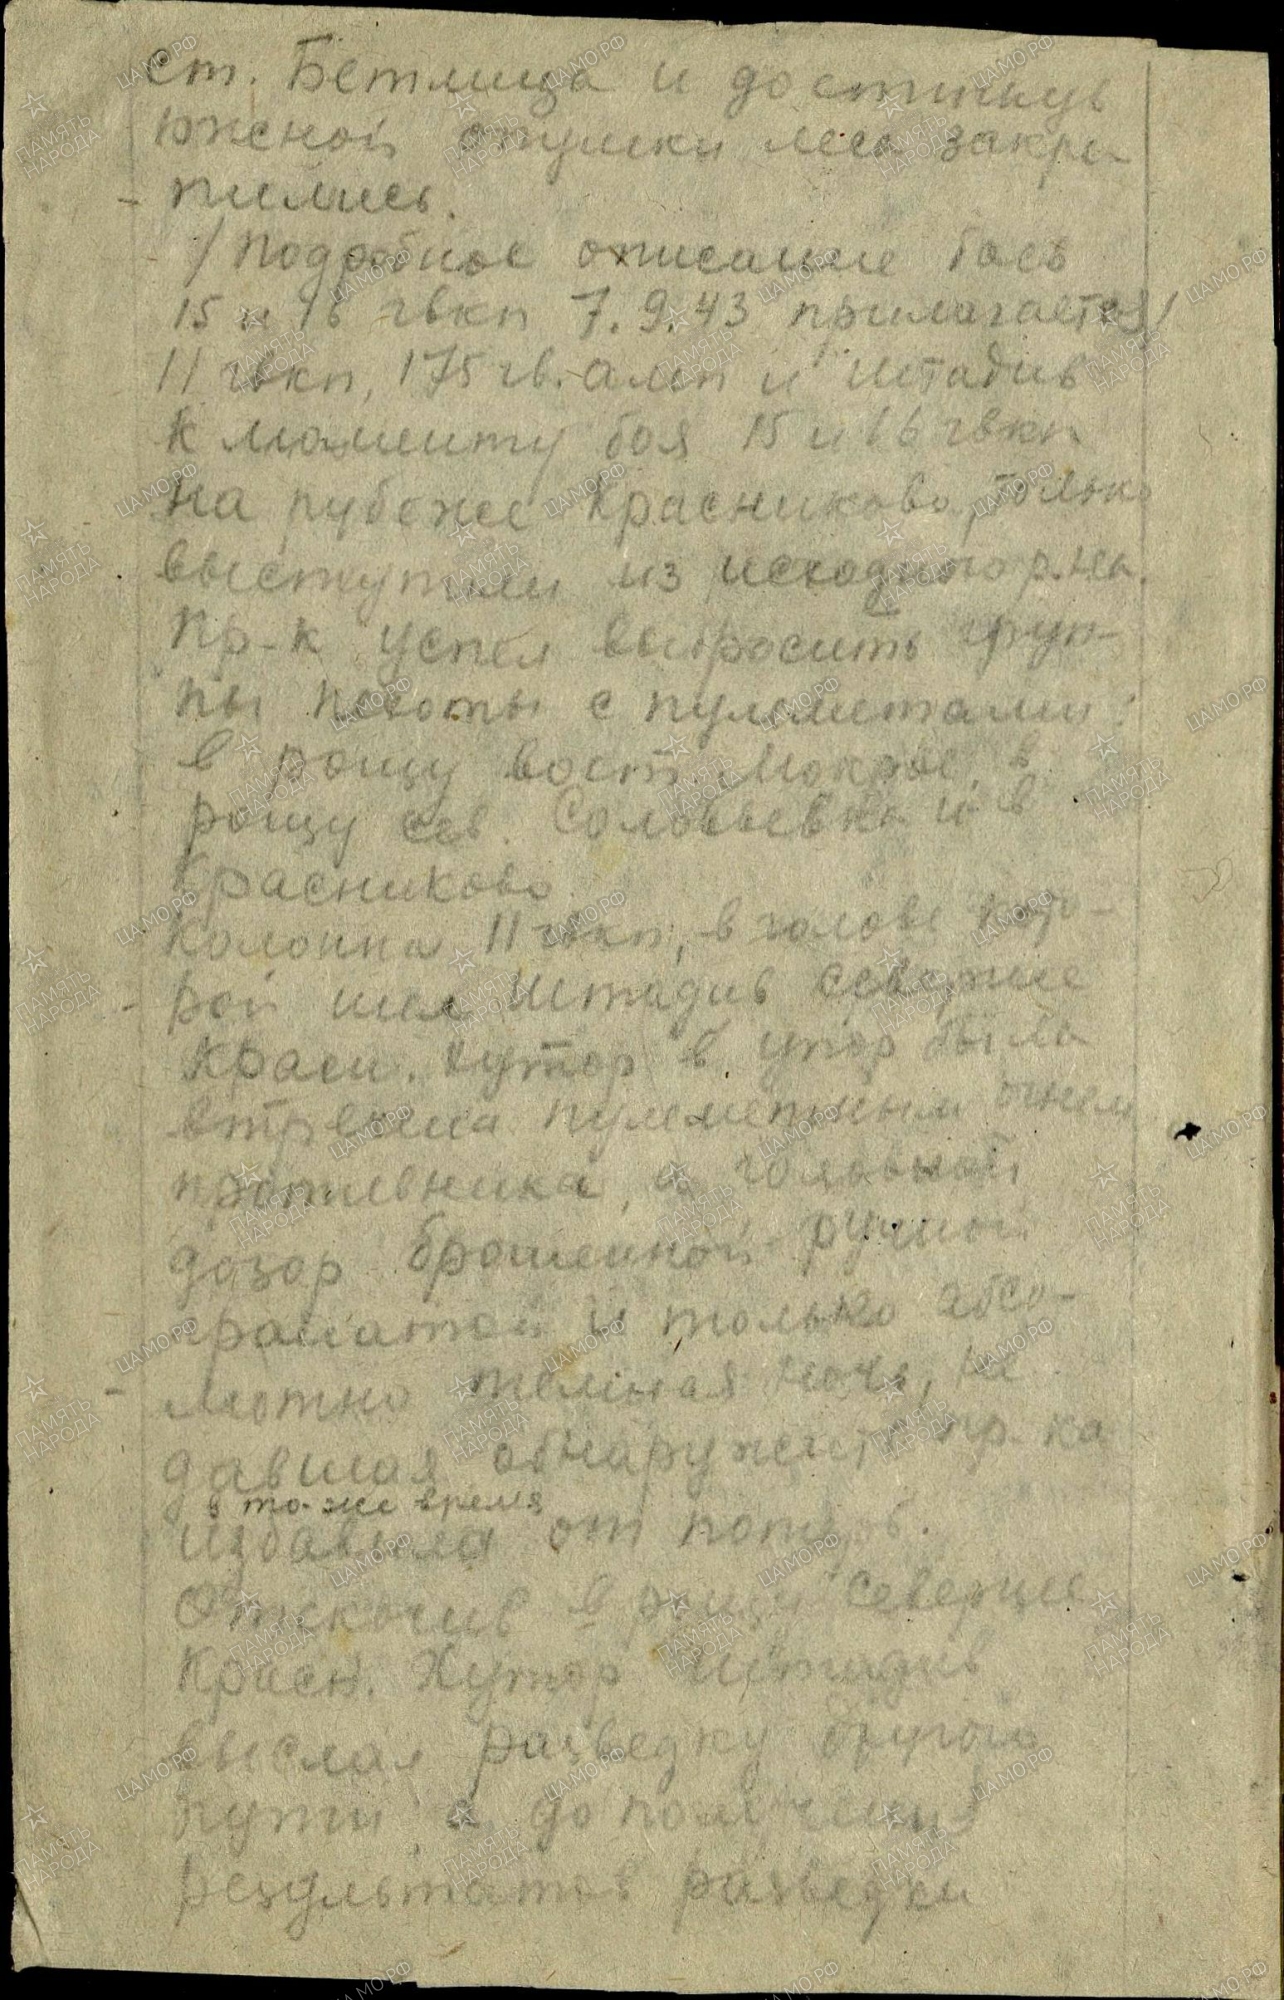 ст. Бетлица и достигнув
южной опушки леса закре-
пились.
/Подробное описание боев
15 и 16 гвкп 7.9.43 прилагается/
11 гвкп, 175 гв. амп и штадив
к моменту боя 15 и 16 гвкп
на рубеже Красниково, только
выступили из исходного р.на.
Пр-к успел выбросить груп-
пы пехоты с пулеметами:
в рощу вост. Мокрое, в
рощу сев. Соловьевка и в
Красниково
Колонна 11 гвкп, в голове кото-
рой шел штадив севернее
Красн. Хутор в упор была
встречена пулеметным огнем
противника, а головной
дозор брошенной ручной
гранатой и только абсо-
лютно темная ночь, не
давшая обнаружить пр-ка
в то-же время
избавила от потерь.
Отскочив в рощу севернее
Красн. Хутор штадив
выслал разведку другого
пути а до получения
результатов разведки